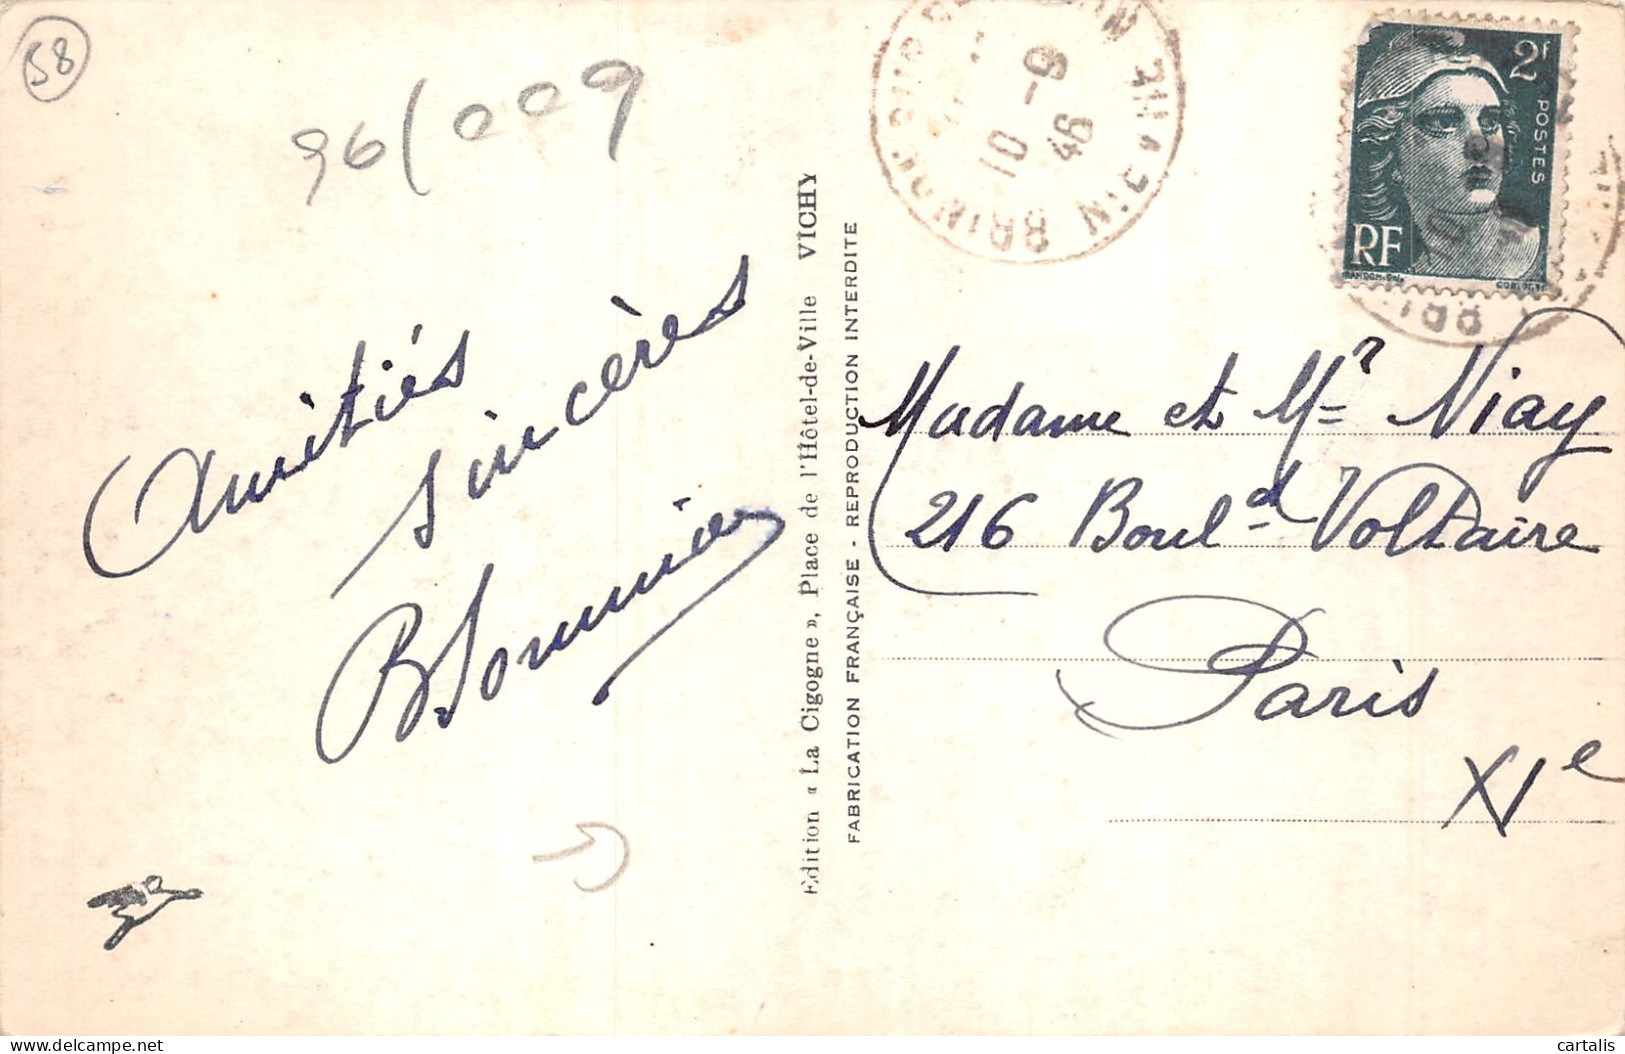 58
96/009
Amitiés
sincères
Edition « La Cigogne », Place de l'Hôtel-de-Ville VICHY
FABRICATION FRANÇAISE - REPRODUCTION INTERDITE
10 -9
46
2F
POSTES
RF
Madame et Mr Niay
216 Bould Voltaire
Paris
XIe
cartalis